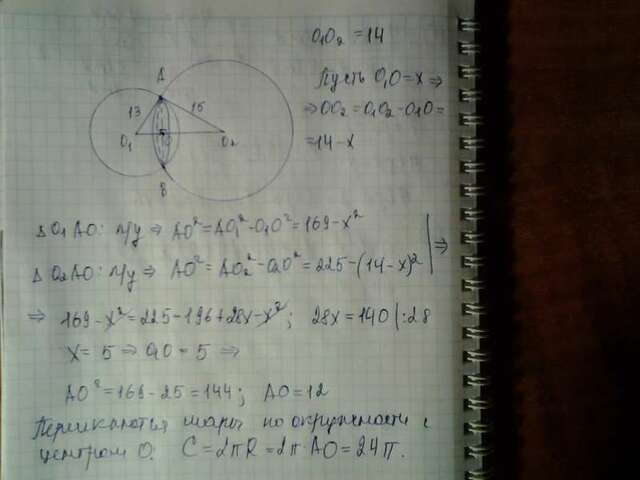 O₁O₂ = 14
Пусть O₁O = x ⇒
⇒ OO₂ = O₁O₂ - O₁O =
= 14 - x
A
13
15
O₁
O₂
B
Δ O₁AO: п/у ⇒ AO² = AO₁² - O₁O² = 169 - x²
Δ O₂AO: п/у ⇒ AO² = AO₂² - O₂O² = 225 - (14 - x)² | ⇒
⇒ 169 - x² = 225 - 196 + 28x - x²; 28x = 140 | :28
x = 5 ⇒ O₁O = 5 ⇒
AO² = 169 - 25 = 144; AO = 12
шары по окружности с
центром O. C = 2πR = 2π·AO = 24π.